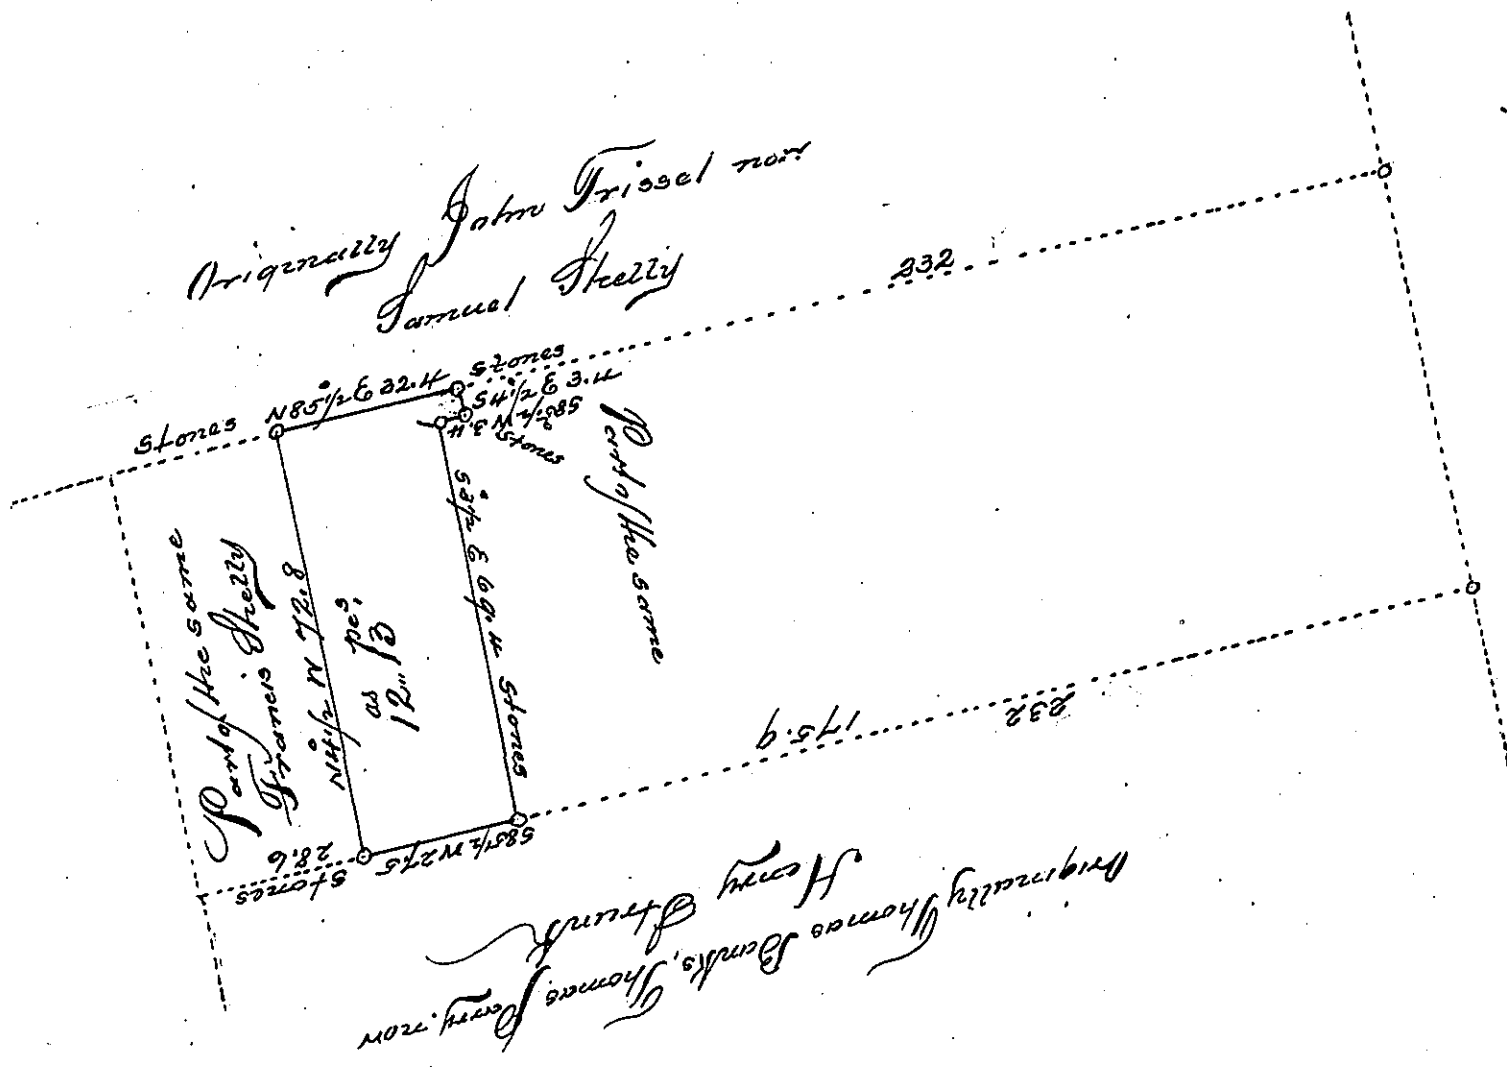 Originally John Trissel now
Samuel Shelly
232
Stones
N85½°E 32.4
Stones
S4½E 3.4
S85½W
3.4
Stones
Part of the same
S3½°E 69.4 Stones
Part of the same
Francis Shelly
N4½°W 72.8
as pes.
12" 13
28.6
Stones
S85½W 27.5
175.9
232
Originally Thomas Banks, Thomas Parry, now
Henry Strunk